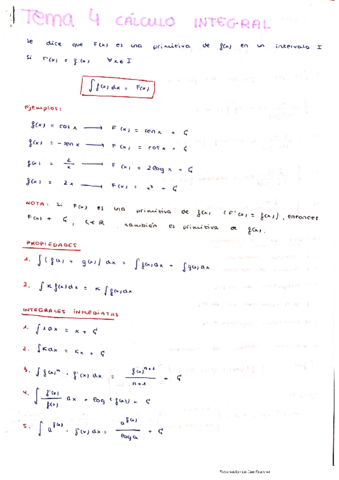 Tema 4 CÁLCULO INTEGRAL
Se dice que F(x) es una primitiva de f(x) en un intervalo I
Si F'(x) = f(x) ∀x∈I
∫f(x)dx = F(x)
Ejemplos:
f(x) = cosx → F(x) = senx + C
f(x) = -senx → F(x) = cosx + C
f(x) = 2/x → F(x) = 2logx + C
f(x) = 2x → F(x) = x² + C
NOTA: Si F(x) es una primitiva de f(x) (F'(x) = f(x)), entonces
F(x) + C, C∈R también es primitiva de f(x).
PROPIEDADES
1. ∫(f(x) + g(x)) dx = ∫f(x)dx + ∫g(x)dx
2. ∫K f(x)dx = K ∫f(x)dx
INTEGRALES INMEDIATAS
1. ∫1dx = x + C
2. ∫Kdx = Kx + C
3. ∫f(x)ⁿ · f'(x) dx = f(x)ⁿ⁺¹/n+1 + C
4. ∫ f'(x)/f(x) dx = log (f(x)) + C
5. ∫ a^f(x) · f'(x) dx = a^f(x)/log a + C